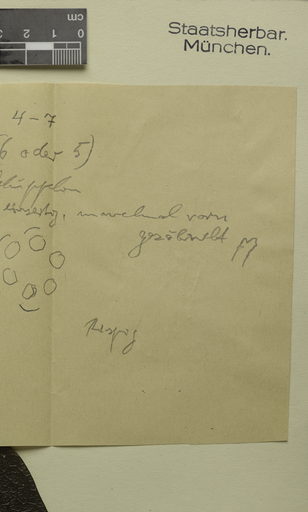 Staatsherbar.
München.
0 1 2 3
cm
4-7
6 oder 5)
manchmal vorn
gezähnelt